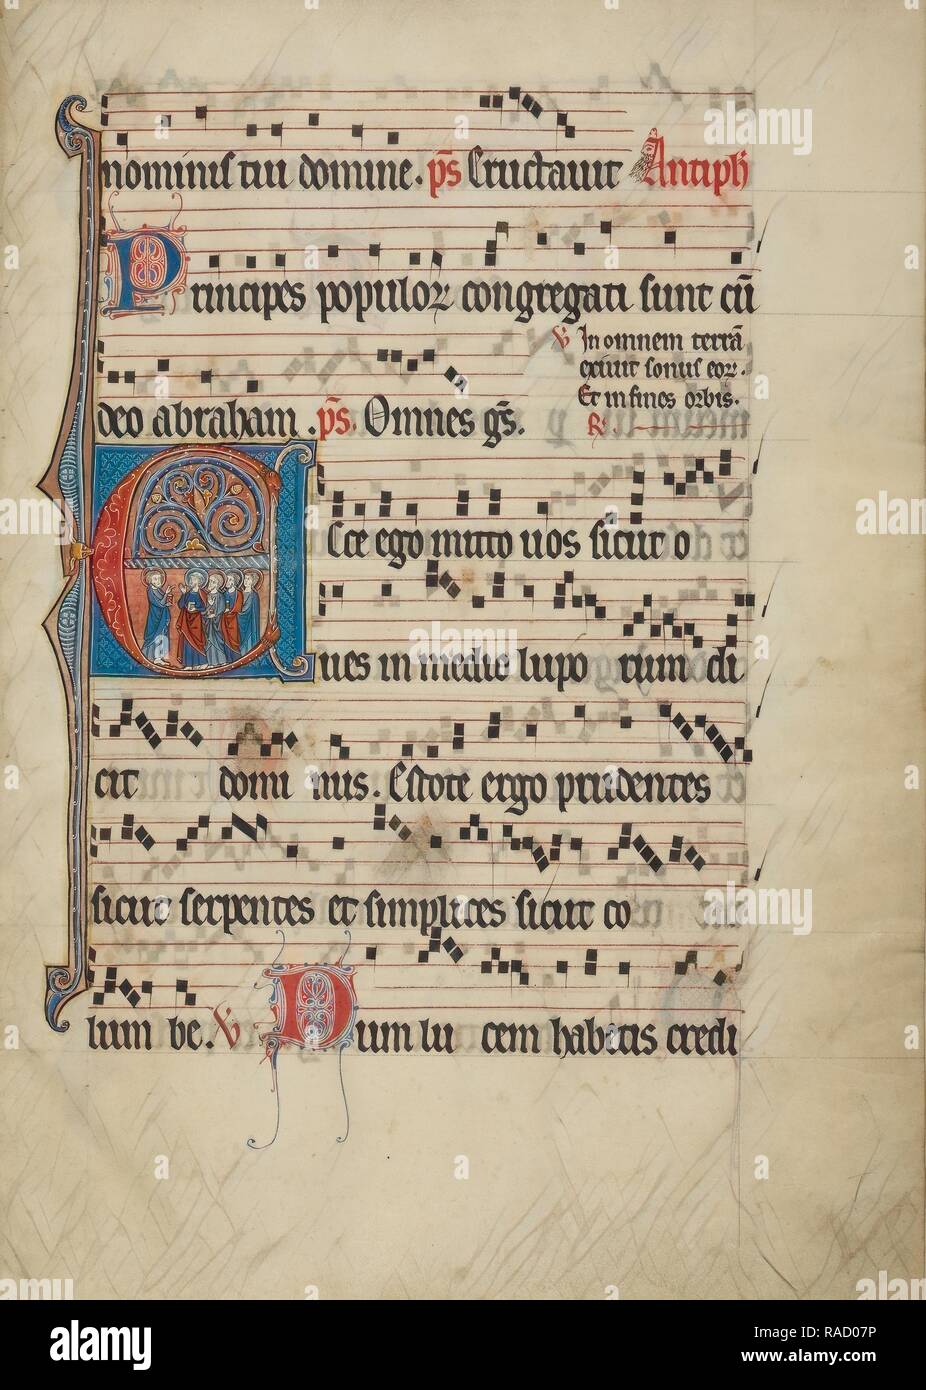 nominis tui domine. p̄s Eructauit Antiph̄
Principes populoꝝ congregati sunt cū
℣ In omnem terrā
exiuit sonus eoꝝ.
Et in fines orbis.
deo abraham. p̄s. Omnes gs̄.
℞
Ecce ego mitto uos sicut o
ues in medio lupo rum di
cit domi nus. Estote ergo prudentes
sicut serpentes et simplices sicut co
lum be. ℣ Dum lu cem habetis credi
alamy
Image ID: RAD07P
www.alamy.com